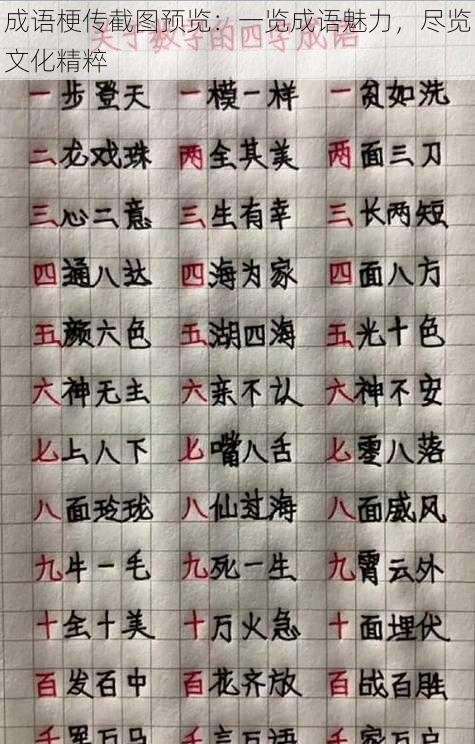 成语梗传截图预览：一览成语魅力，尽览
文化精粹
关于数字的四字成语
一步登天 一模一样 一贫如洗
二龙戏珠 两全其美 两面三刀
三心二意 三生有幸 三长两短
四通八达 四海为家 四面八方
五颜六色 五湖四海 五光十色
六神无主 六亲不认 六神不安
七上八下 七嘴八舌 七零八落
八面玲珑 八仙过海 八面威风
九牛一毛 九死一生 九霄云外
十全十美 十万火急 十面埋伏
百发百中 百花齐放 百战百胜
千军万马 千言万语 千家万户